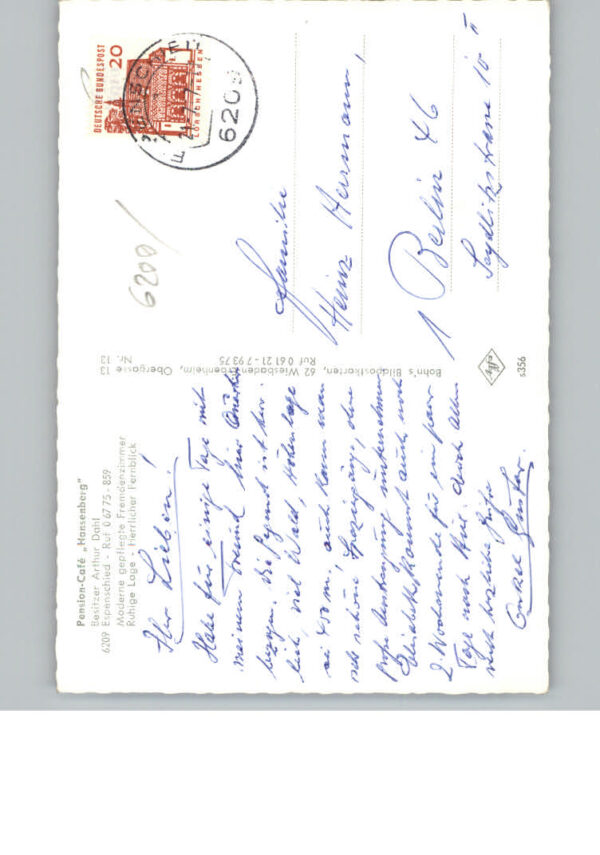 Pension-Café „Hansenberg"
Besitzer Arthur Dahl
6209 Espenschied - Ruf 0 67 75 - 859
Moderne gepflegte Fremdenzimmer
Ruhige Lage - Herrlicher Fernblick
Ihr Lieben!
Habe für einige Tage mit
meinem Freund hier Quartier
bezogen. Die Gegend ist herr-
lich, viel Wald, Höhenlage
ca 400 m, auch kann man
sehr schöne Spaziergänge, ohne
große Anstrengung unternehmen
Elisabeth kommt auch noch
2. Wochenende für ein paar
Tage nach hier. Euch allen
recht herzliche Grüße
Günter
Bohn's Bildpostkarten, 62 Wiesbaden-Igstadt
Obergasse 13
Ruf 0 61 21 - 7 93 75
Nr. 13
s 356
DEUTSCHE BUNDESPOST
20
LORSCH/HESSEN
6209
6200/
Familie
Heinz Hermann,
1 Berlin 46
Seydlitzstrasse 10 II